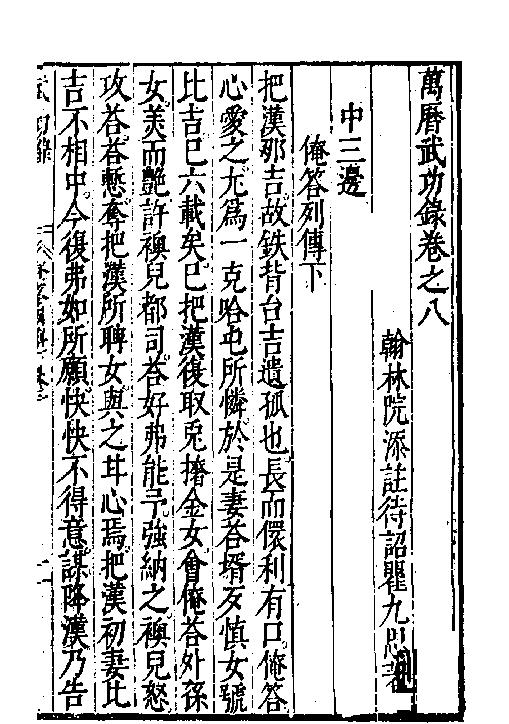 萬曆武功錄卷之八
翰林院添註待詔瞿九思著
中三邊
俺答列傳下
把漢那吉故鉄背台吉遺孤也長而儇利有口俺答
心愛之尤爲一克哈屯所憐於是妻荅壻歹慎女號
比吉巳六載矣巳把漢復取兎撦金女會俺荅外孫
女美而艷許襖兒都司荅好弗能予強納之襖兒怒
攻荅荅懸奪把漢所聘女與之甘心焉把漢初妻比
吉不相中今復弗如所願怏怏不得意謀降漢乃告